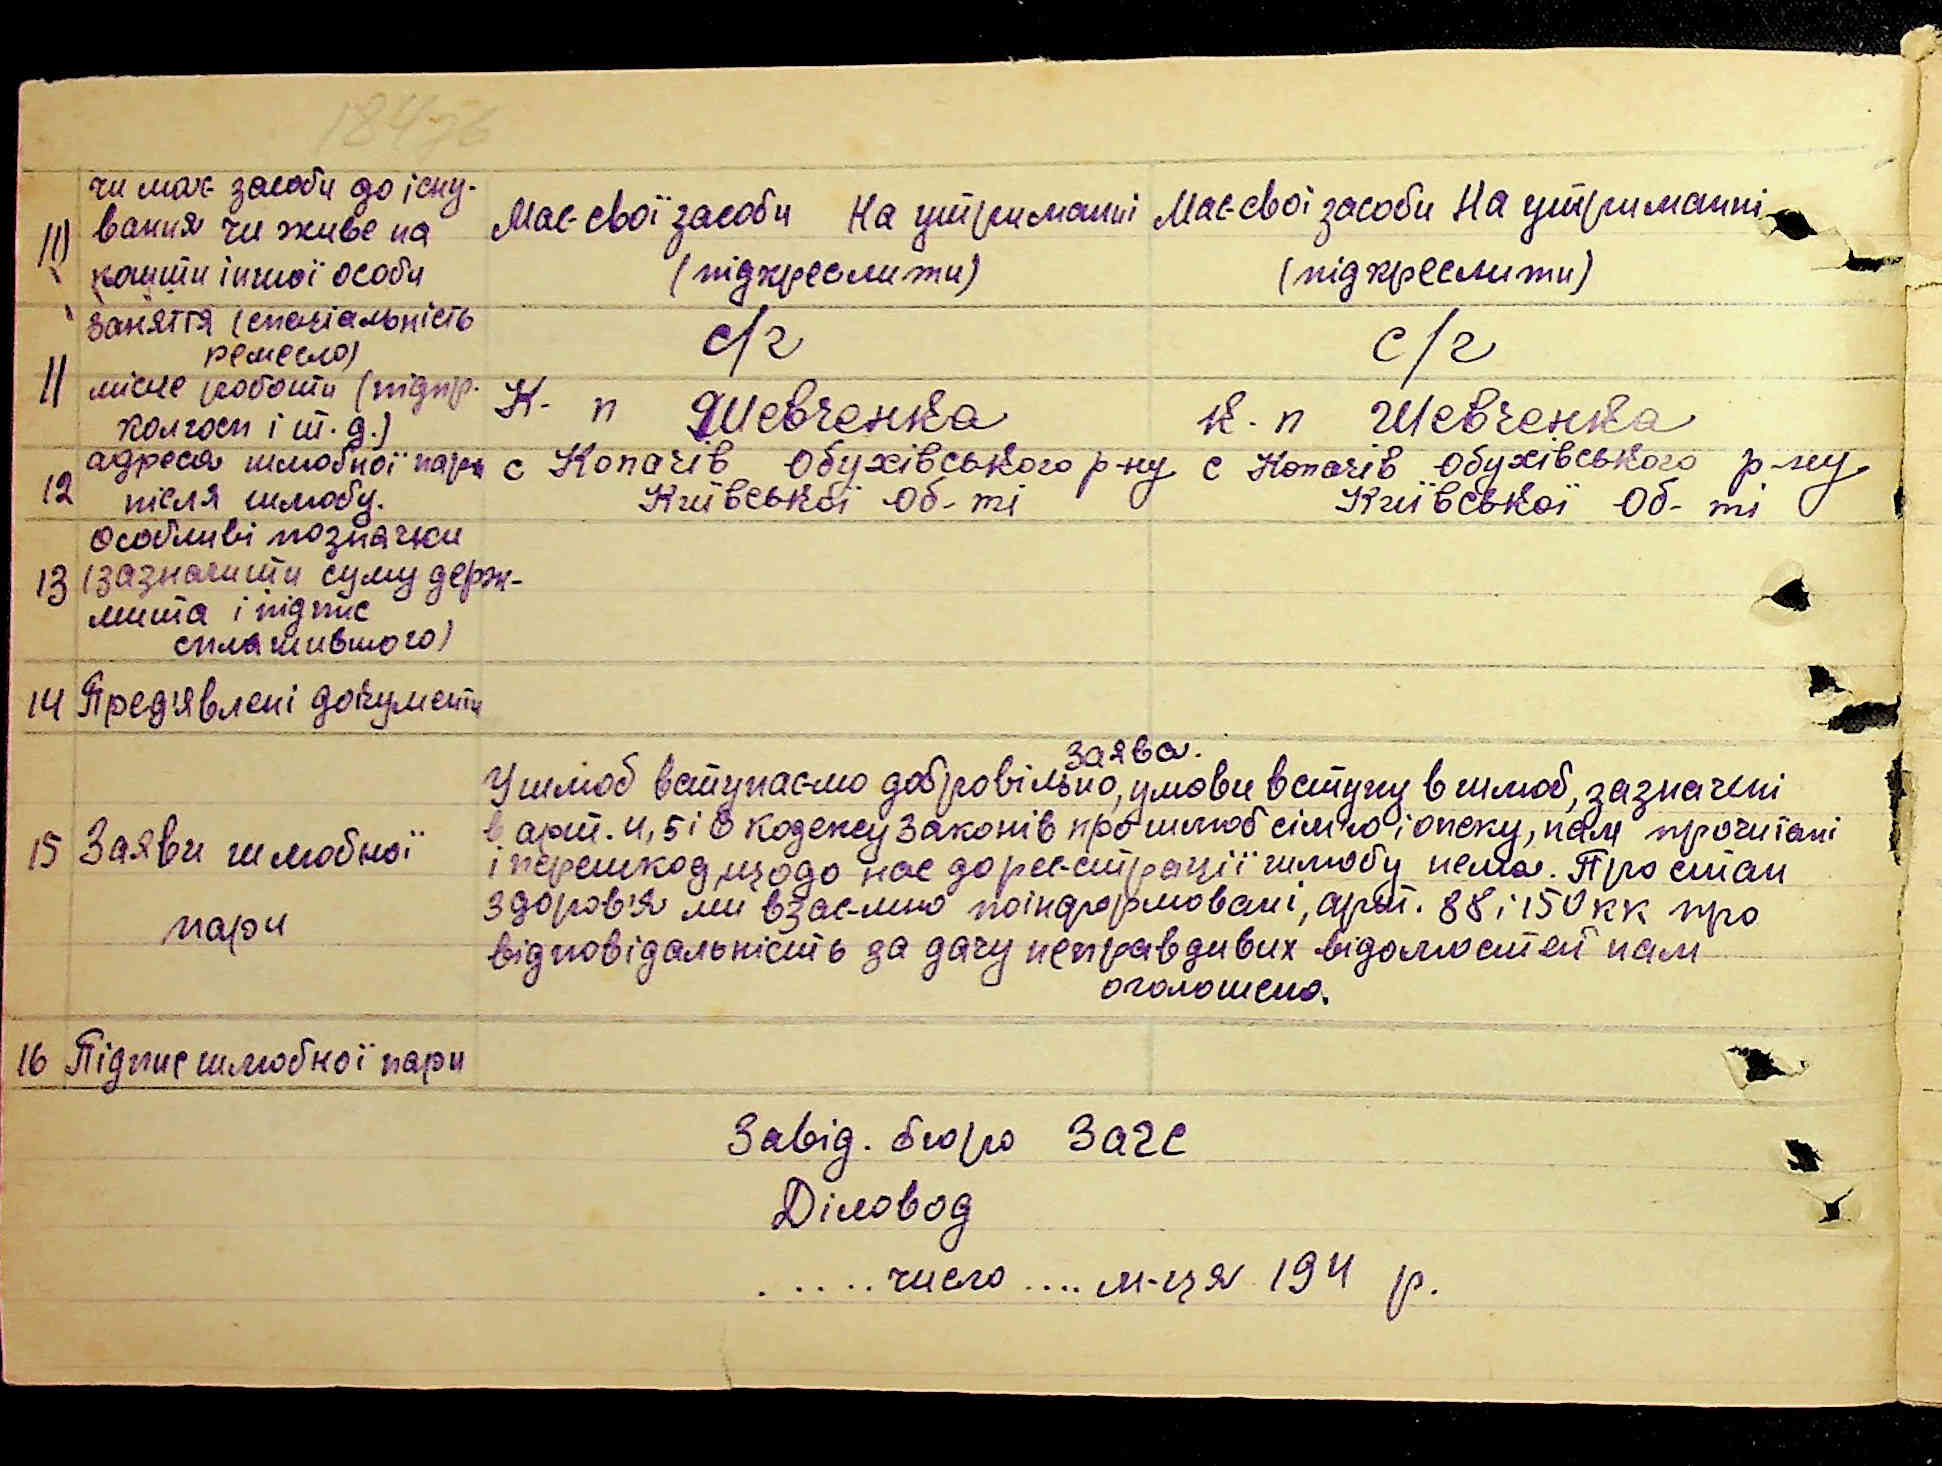 184зв
чи має засоби до існу-
10) вання чи живе на
кошти іншої особи
Має свої засоби На утриманні Має свої засоби На утриманні
(підкреслити) (підкреслити)
Заняття (спеціальність
ремесло)
с/г с/г
11 місце роботи (підпр.
колгосп і т. д.)
К. п Шевченка к. п Шевченка
адреса шлюбної пари
12 після шлюбу.
с Копачів Обухівського р-ну с Копачів Обухівського р-ну
Київської Об-ті Київської Об-ті
особливі позначки
13 (зазначити суму держ-
мита і підпис
сплатившого)
14 Пред'явлені документи
Заява.
У шлюб вступаємо добровільно, умови вступу в шлюб, зазначені
в арт. 4, 5 і 6 кодексу Законів про шлюб сім'ю і опеку, нам прочитані
15 Заяви шлюбної
пари
і перешкод щодо нас до реєстрації шлюбу нема. Про стан
здоров'я ми взаємно поінформовані, арт. 88 і 150 кк про
відповідальність за дачу неправдивих відомостей нам
оголошено.
16 Підпис шлюбної пари
Завід. бюро Загс
Діловод
..... число .... м-ця 194 р.